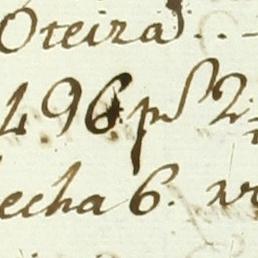 Oteiza . . -
496 ps 2
echa 6.